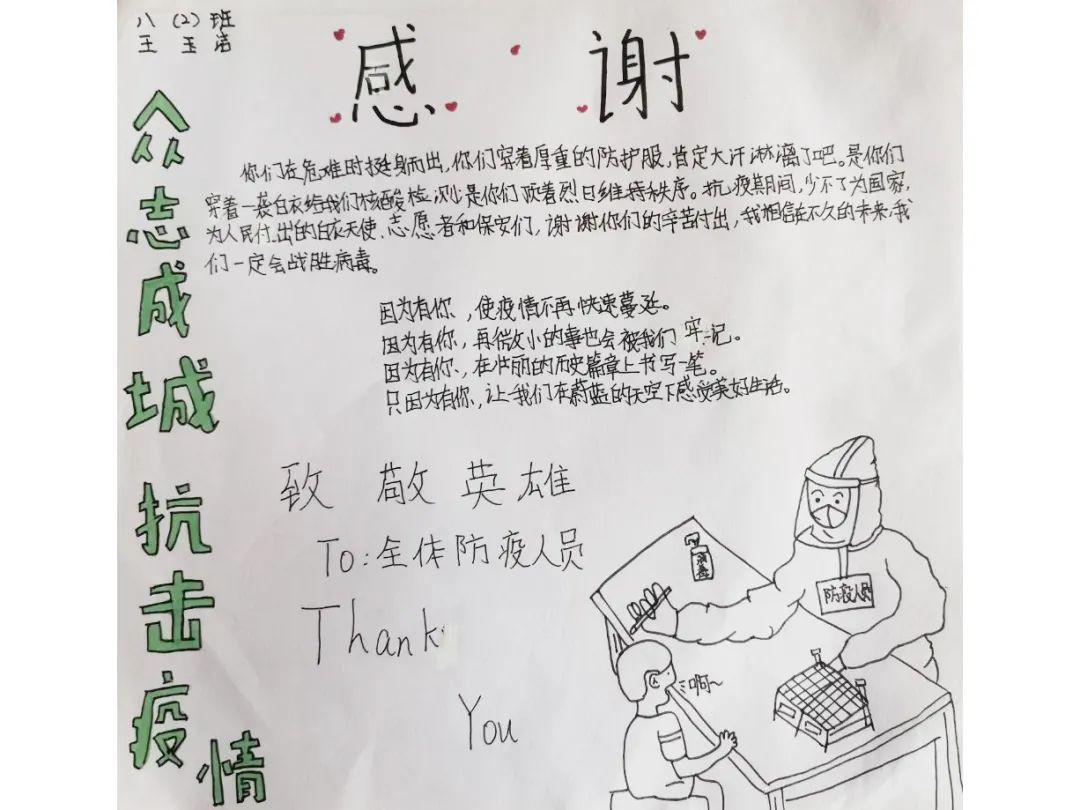 八（2）班
王玉洁
感谢
众志成城抗击疫情
你们在危难时挺身而出，你们穿着厚重的防护服，肯定大汗淋漓了吧。是你们
穿着一袭白衣给我们核酸检测，是你们顶着烈日维持秩序。抗疫期间，少不了为国家，
为人民付出的白衣天使、志愿者和保安们，谢谢你们的辛苦付出，我相信在不久的未来，我
们一定会战胜病毒。
因为有你，使疫情不再快速蔓延。
因为有你，再微小的事也会被我们牢记。
因为有你，在壮丽的历史篇章上书写一笔。
只因为有你，让我们在蔚蓝的天空下感觉美好生活。
致敬英雄
To：全体防疫人员
Thank
You
消毒
防疫人员
啊~